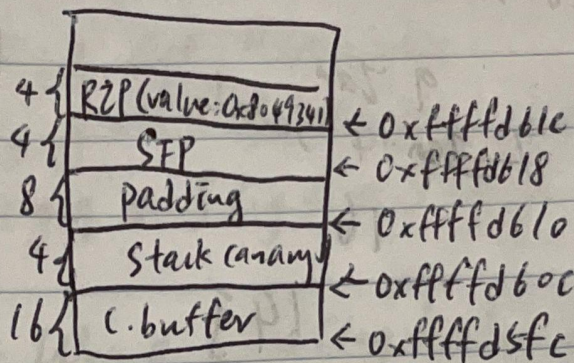 4{ RIP (value: 0x8049341)
← 0xffffd61c
4{ SFP
← 0xffffd618
8{ padding
← 0xffffd610
4{ stack canary
← 0xffffd60c
16{ c.buffer
← 0xffffd5fc